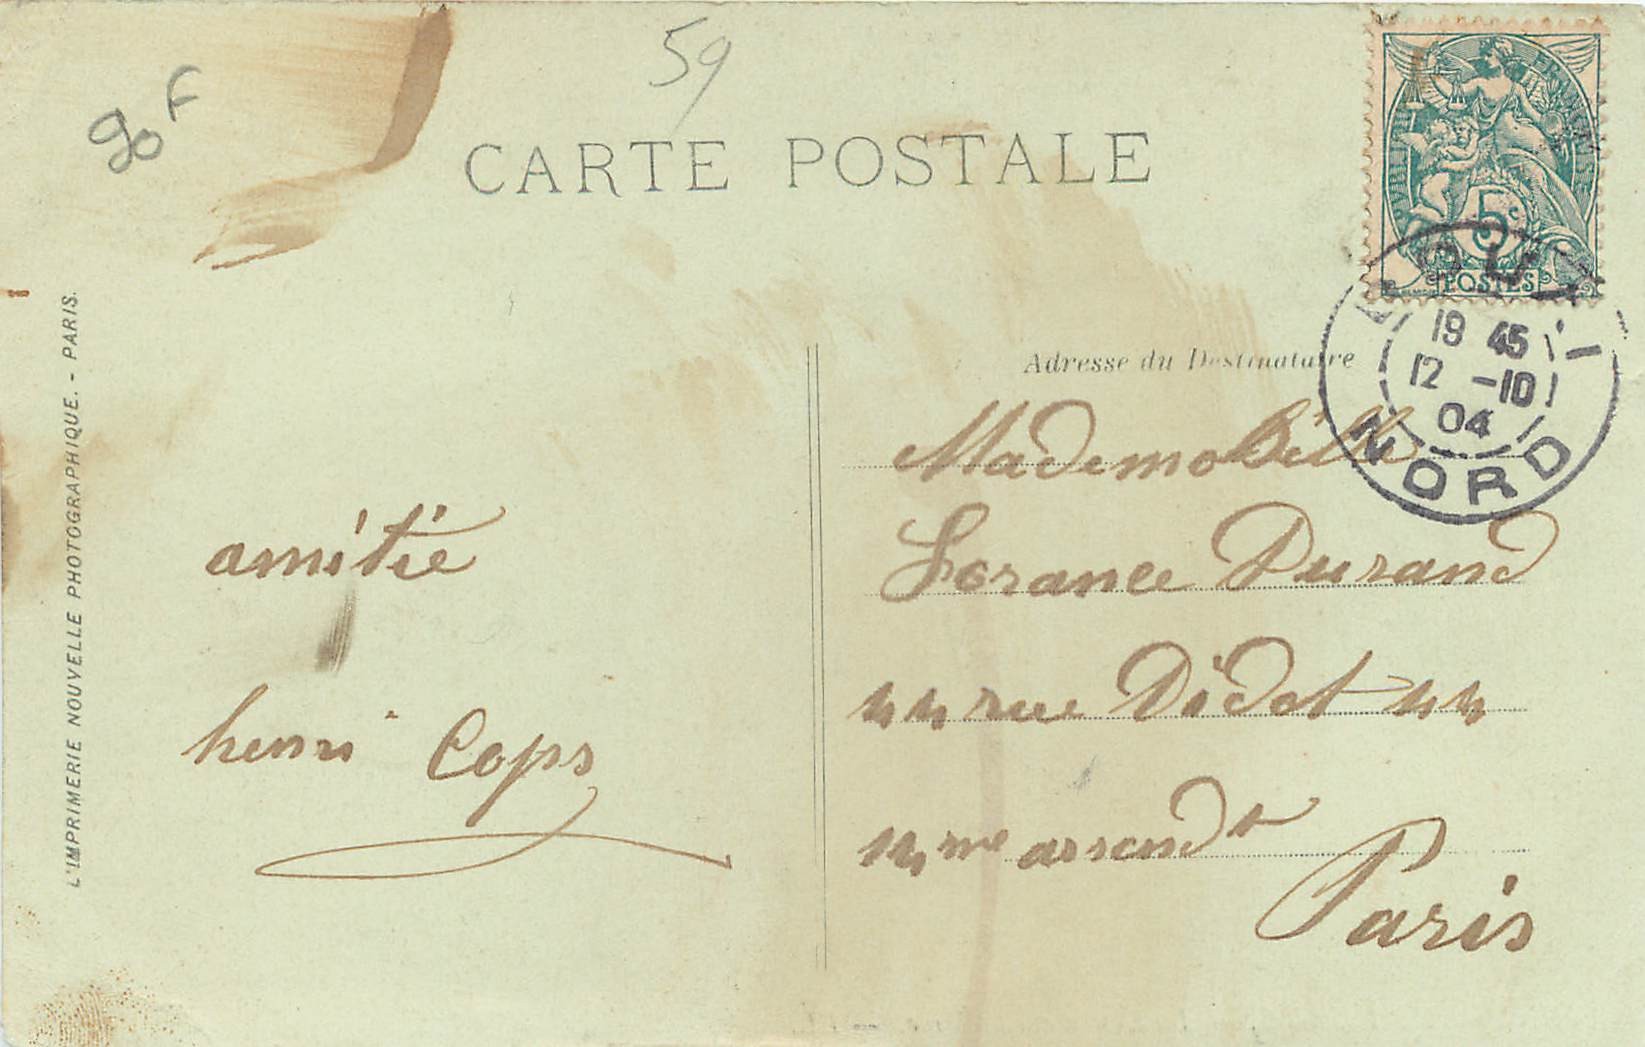 90 F
59
CARTE POSTALE
RÉPUBLIQUE FRANÇAISE
5c
POSTES
DOUAI
19 45
12 -10
04
NORD
L'IMPRIMERIE NOUVELLE PHOTOGRAPHIQUE. - PARIS.
Adresse du Destinataire
amitié
henri Cops
Mademoiselle
Durand
44 rue Didot 44
14me arrondt
Paris